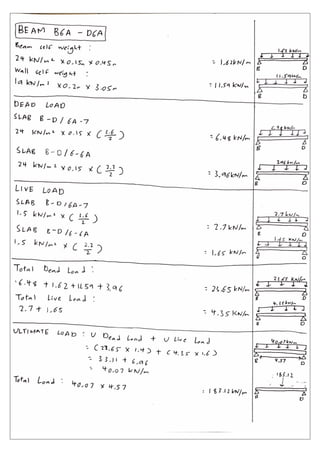 BEAM B6A - D6A
Beam self weight :
24 kN/m² x 0.15m x 0.45m = 1.62kN/m
Wall self weight :
19 kN/m² x 0.2m x 3.05m = 11.59 kN/m
DEAD LOAD
SLAB B-D/6A-7
24 kN/m² x 0.15 x (3.6/2) = 6.48 kN/m
SLAB B-D/6-6A
24 kN/m² x 0.15 x (2.2/2) = 3.96kN/m
LIVE LOAD
SLAB B-D/6A-7
1.5 kN/m² x (3.6/2) = 2.7kN/m
SLAB B-D/6-6A
1.5 kN/m² x (2.2/2) = 1.65 kN/m
Total Dead Load :
6.48 + 1.62 + 11.59 + 3.96 = 23.65 kN/m
Total Live Load :
2.7 + 1.65 = 4.35 kN/m
ULTIMATE LOAD : U Dead Load + U Live Load
= (23.65 x 1.4) + (4.35 x 1.6)
= 33.11 + 6.96
= 40.07 kN/m
Total Load : 40.07 x 4.57 = 183.12kN/m
1.62 kN/m
B D
11.59kN/m
B D
6.48kN/m
B D
3.96kN/m
B D
2.7kN/m
B D
1.65 kN/m
B D
23.65 kN/m
B D
4.35kN/m
B D
40.07kN/m
B 4.57 D
183.12
B D